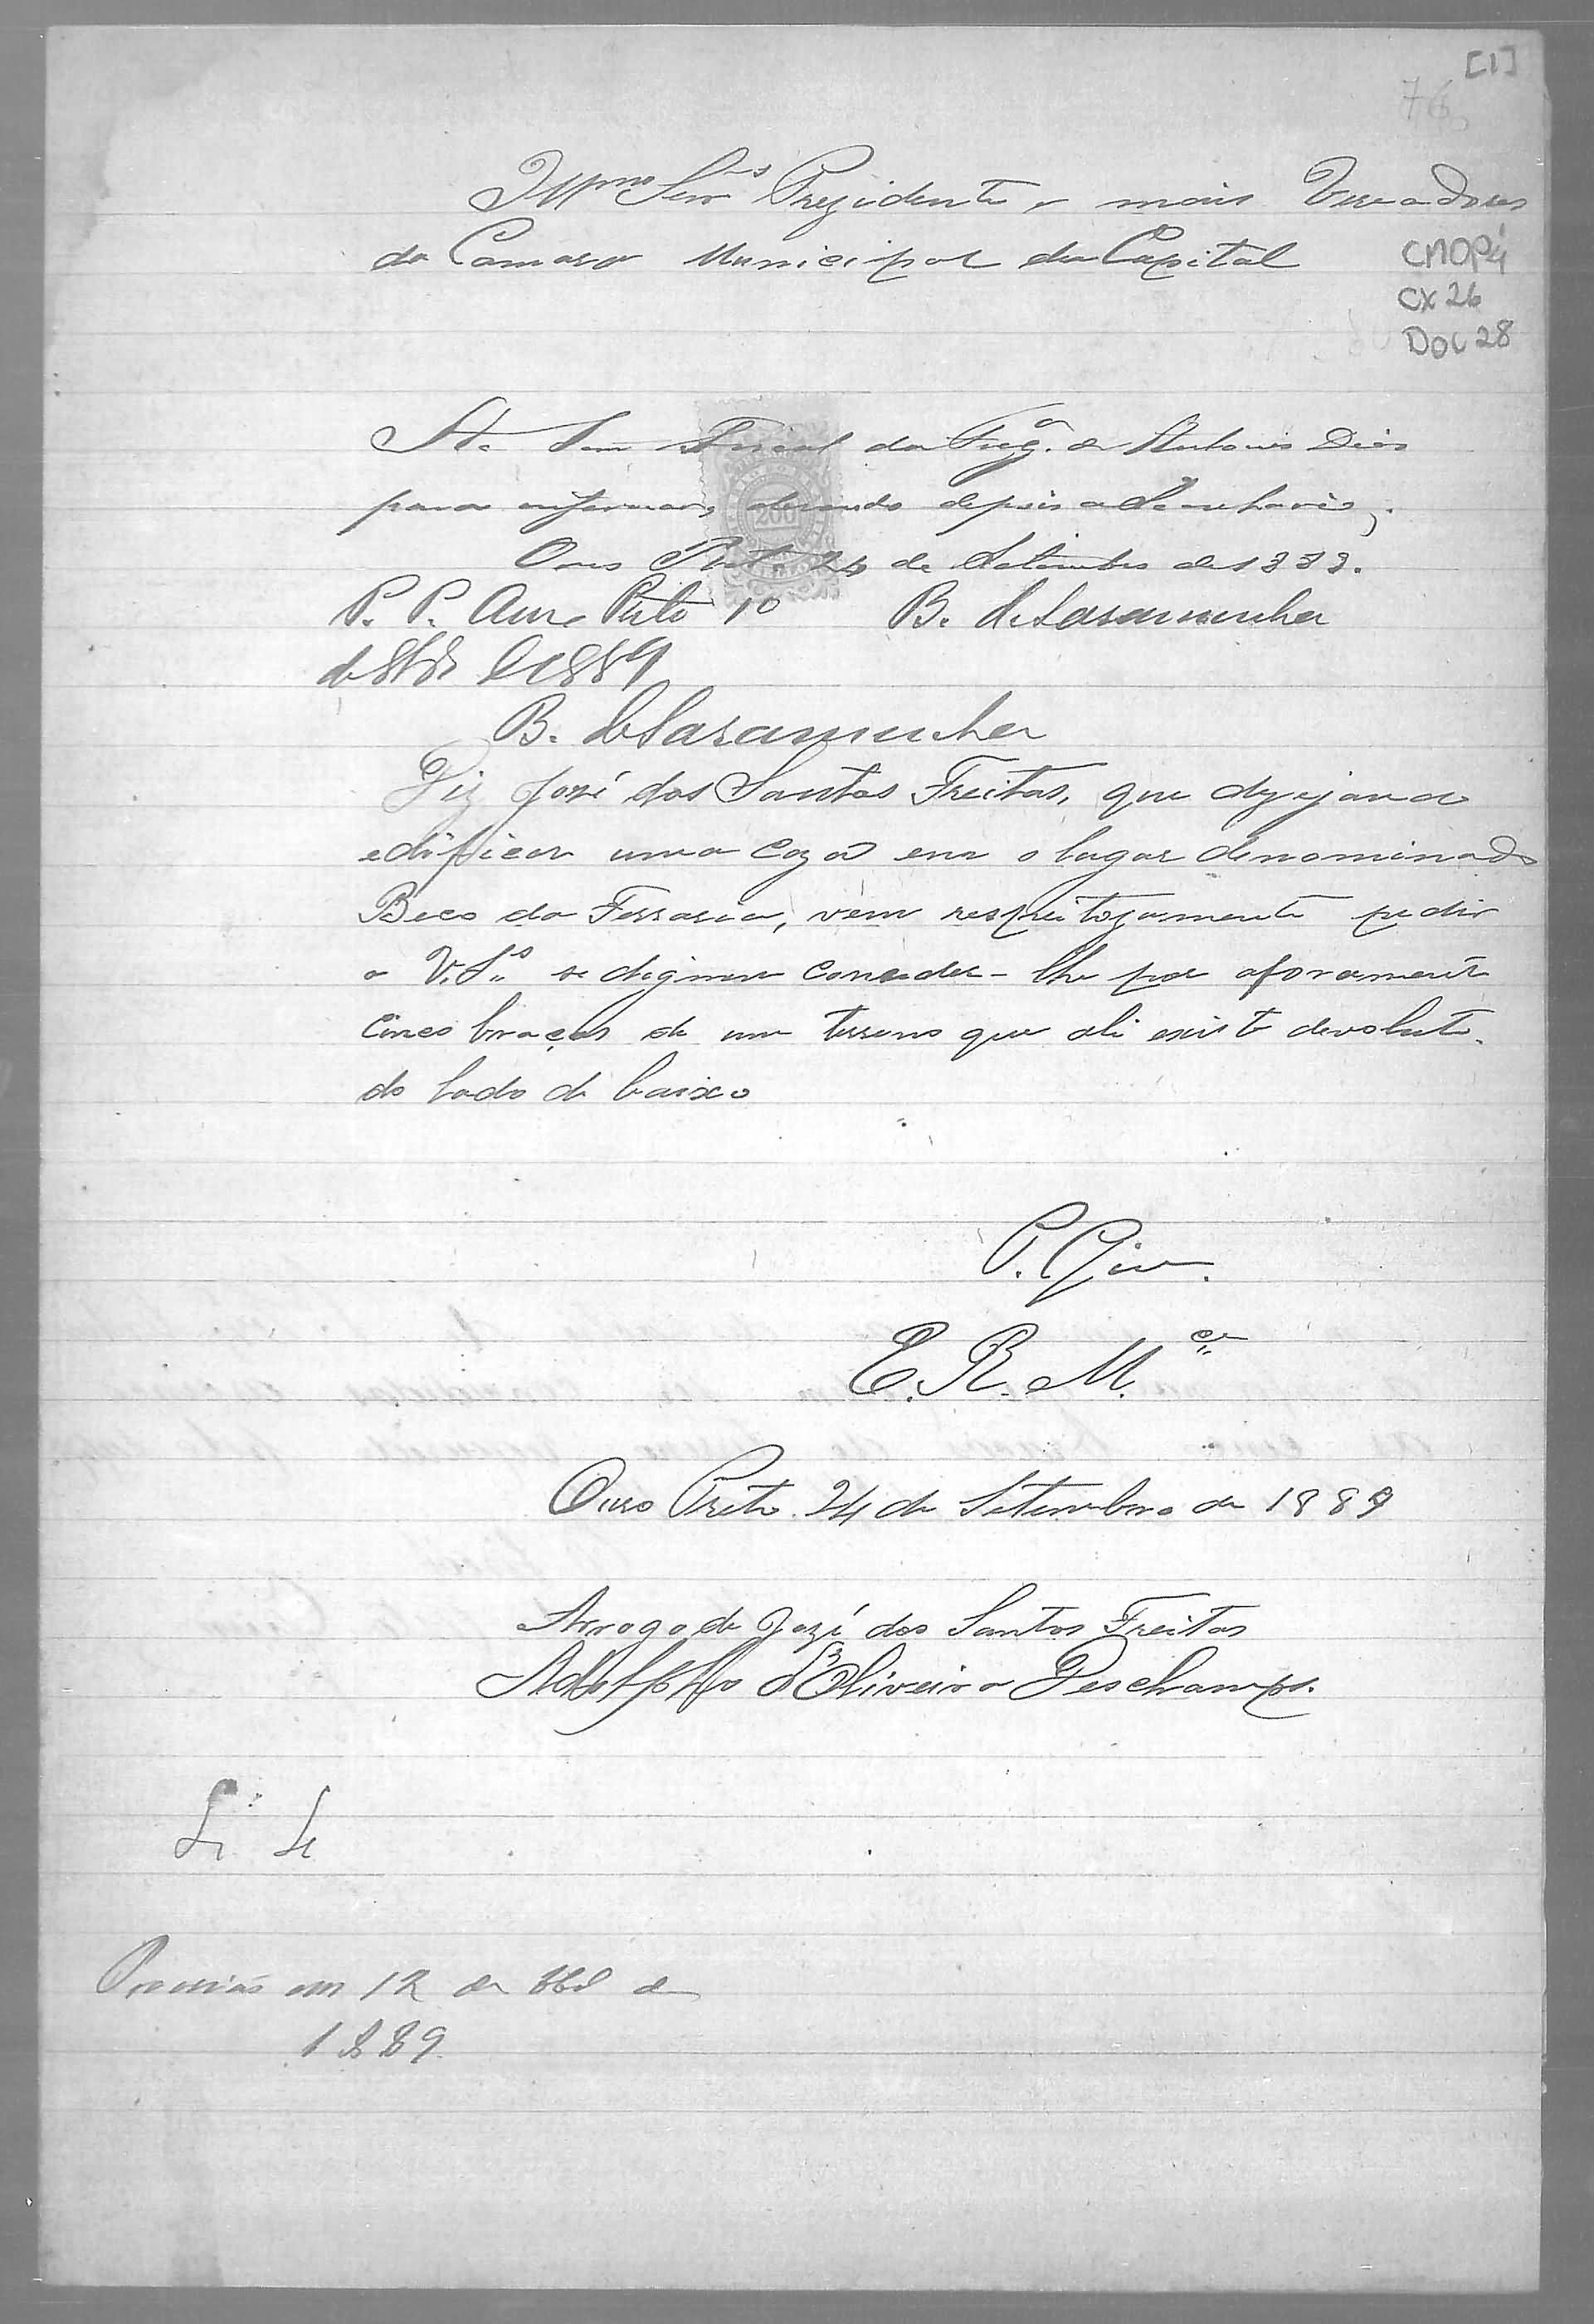 [1]
76
Illmos Senrs Prezidente e mais Vereadores
da Camara Municipal da Capital
CMOP4
CX 26
DOC 28
Ao Snr Fiscal da Fregª. de Antonio Dias
para informar, ouvindo depois
Ouro Preto 24 de Setembro de 1889.
200
P. P. Ouro Preto 1º
de 8bro de 1889
B. de Saramenha
B. de Saramenha
Diz José dos Santos Freitas, que dezejando
edificar uma caza em o lugar denominado
Beco da Ferraria, vem respeitozamente pedir
a V.Sas se dignem conceder-lhe por aforamento
cinco braças de um terreno que ali existe devoluto
do lado de baixo
E. R. M.ce
Ouro Preto 24 de Setembro de 1889
Arrogo de Jozé dos Santos Freitas
Adolpho d'Oliveira Deschamps.
em 12 de de
1889